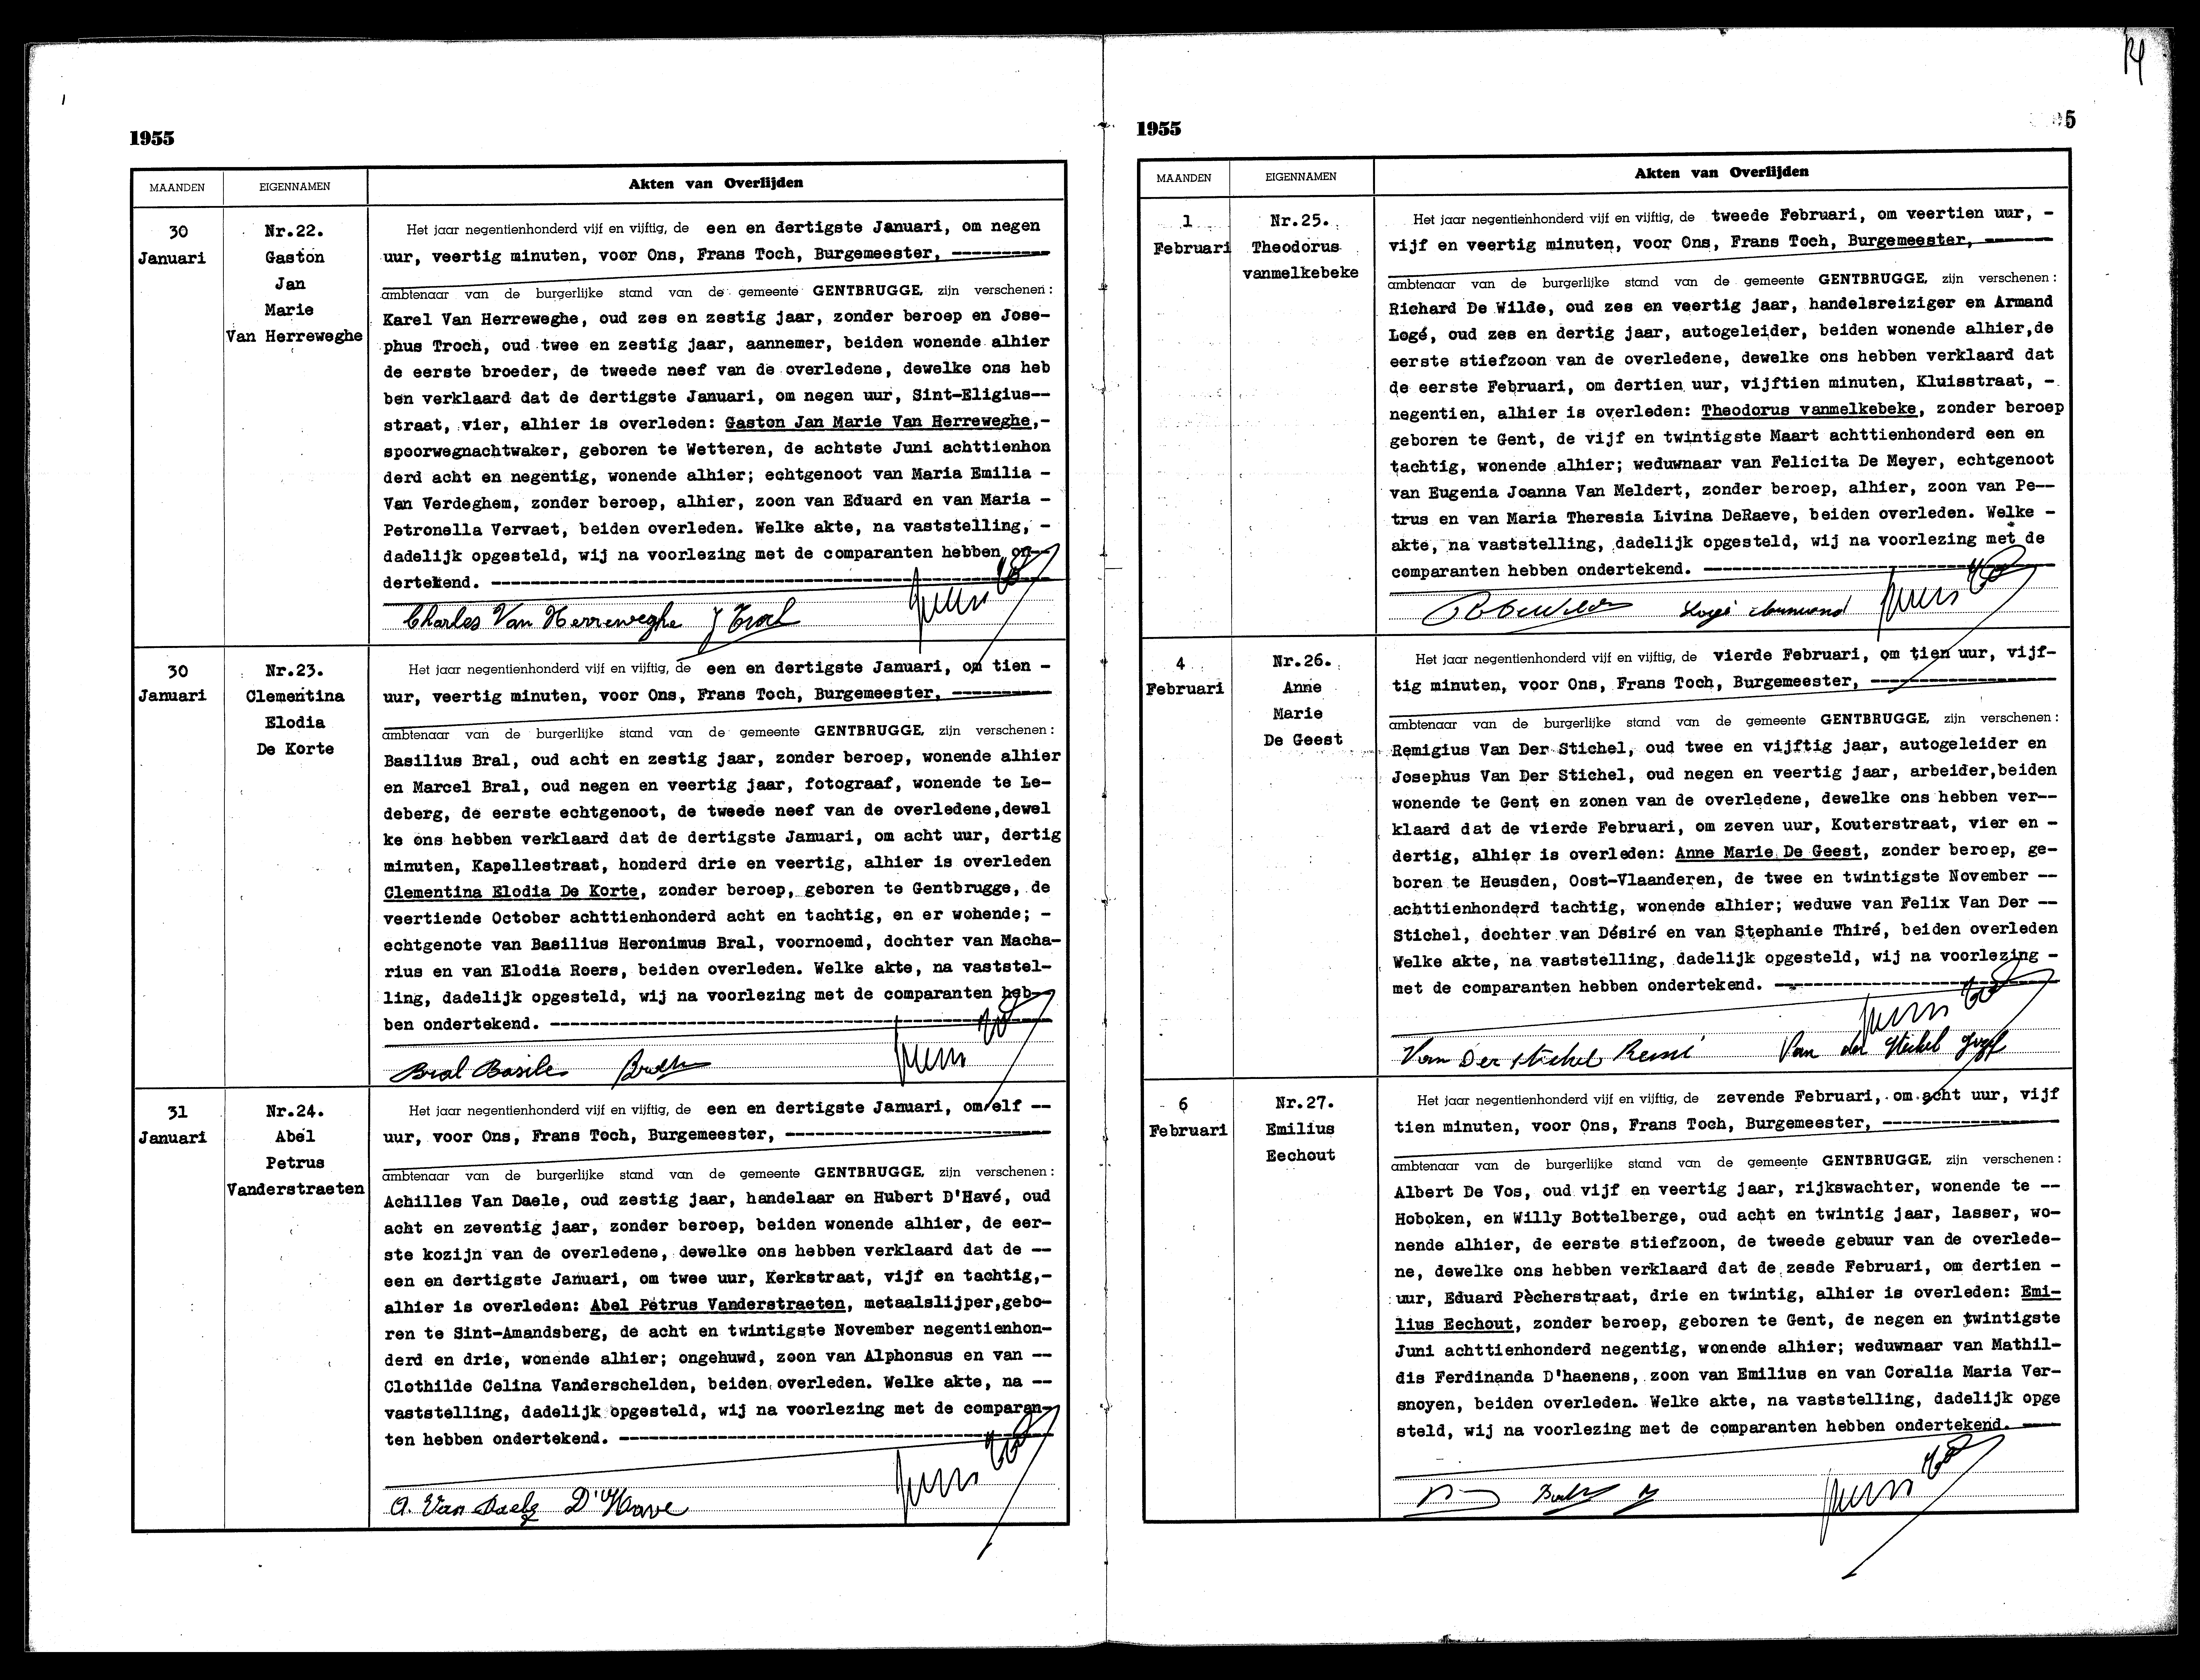 1955
MAANDEN EIGENNAMEN Akten van Overlijden
30
Januari
Nr.22.
Gaston
Jan
Marie
Van Herreweghe
Het jaar negentienhonderd vijf en vijftig, de een en dertigste Januari, om negen
uur, veertig minuten, voor Ons, Frans Toch, Burgemeester, ----------
ambtenaar van de burgerlijke stand van de gemeente GENTBRUGGE, zijn verschenen:
Karel Van Herreweghe, oud zes en zestig jaar, zonder beroep en Jose-
phus Troch, oud twee en zestig jaar, aannemer, beiden wonende alhier
de eerste broeder, de tweede neef van de overledene, dewelke ons heb
ben verklaard dat de dertigste Januari, om negen uur, Sint-Eligius--
straat, vier, alhier is overleden: Gaston Jan Marie Van Herreweghe,-
spoorwegnachtwaker, geboren te Wetteren, de achtste Juni achttienhon
derd acht en negentig, wonende alhier; echtgenoot van Maria Emilia -
Van Verdeghem, zonder beroep, alhier, zoon van Eduard en van Maria -
Petronella Vervaet, beiden overleden. Welke akte, na vaststelling, -
dadelijk opgesteld, wij na voorlezing met de comparanten hebben on-
dertekend. ----------
Charles Van Herreweghe J Troch
30
Januari
Nr.23.
Clementina
Elodia
De Korte
Het jaar negentienhonderd vijf en vijftig, de een en dertigste Januari, om tien -
uur, veertig minuten, voor Ons, Frans Toch, Burgemeester, ----------
ambtenaar van de burgerlijke stand van de gemeente GENTBRUGGE, zijn verschenen:
Basilius Bral, oud acht en zestig jaar, zonder beroep, wonende alhier
en Marcel Bral, oud negen en veertig jaar, fotograaf, wonende te Le-
deberg, de eerste echtgenoot, de tweede neef van de overledene,dewel
ke ons hebben verklaard dat de dertigste Januari, om acht uur, dertig
minuten, Kapellestraat, honderd drie en veertig, alhier is overleden
Clementina Elodia De Korte, zonder beroep, geboren te Gentbrugge, de
veertiende October achttienhonderd acht en tachtig, en er wohende; -
echtgenote van Basilius Heronimus Bral, voornoemd, dochter van Macha-
rius en van Elodia Roers, beiden overleden. Welke akte, na vaststel-
ling, dadelijk opgesteld, wij na voorlezing met de comparanten heb-
ben ondertekend. ----------
Bral Basile
31
Januari
Nr.24.
Abel
Petrus
Vanderstraeten
Het jaar negentienhonderd vijf en vijftig, de een en dertigste Januari, om elf --
uur, voor Ons, Frans Toch, Burgemeester, ----------
ambtenaar van de burgerlijke stand van de gemeente GENTBRUGGE, zijn verschenen:
Achilles Van Daele, oud zestig jaar, handelaar en Hubert D'Havé, oud
acht en zeventig jaar, zonder beroep, beiden wonende alhier, de eer-
ste kozijn van de overledene, dewelke ons hebben verklaard dat de --
een en dertigste Januari, om twee uur, Kerkstraat, vijf en tachtig,-
alhier is overleden: Abel Petrus Vanderstraeten, metaalslijper,gebo-
ren te Sint-Amandsberg, de acht en twintigste November negentienhon-
derd en drie, wonende alhier; ongehuwd, zoon van Alphonsus en van --
Clothilde Celina Vanderschelden, beiden overleden. Welke akte, na --
vaststelling, dadelijk opgesteld, wij na voorlezing met de comparan-
ten hebben ondertekend. ----------
A. Van Daele D'Have
1955 5
MAANDEN EIGENNAMEN Akten van Overlijden
1
Februari
Nr.25.
Theodorus
vanmelkebeke
Het jaar negentienhonderd vijf en vijftig, de tweede Februari, om veertien uur, -
vijf en veertig minuten, voor Ons, Frans Toch, Burgemeester, -------
ambtenaar van de burgerlijke stand van de gemeente GENTBRUGGE, zijn verschenen:
Richard De Wilde, oud zes en veertig jaar, handelsreiziger en Armand
Logé, oud zes en dertig jaar, autogeleider, beiden wonende alhier,de
eerste stiefzoon van de overledene, dewelke ons hebben verklaard dat
de eerste Februari, om dertien uur, vijftien minuten, Kluisstraat, -
negentien, alhier is overleden: Theodorus vanmelkebeke, zonder beroep
geboren te Gent, de vijf en twintigste Maart achttienhonderd een en
tachtig, wonende alhier; weduwnaar van Felicita De Meyer, echtgenoot
van Eugenia Joanna Van Meldert, zonder beroep, alhier, zoon van Pe--
trus en van Maria Theresia Livina DeRaeve, beiden overleden. Welke -
akte, na vaststelling, dadelijk opgesteld, wij na voorlezing met de
comparanten hebben ondertekend. ----------
Logé Armand
4
Februari
Nr.26.
Anne
Marie
De Geest
Het jaar negentienhonderd vijf en vijftig, de vierde Februari, om tien uur, vijf-
tig minuten, voor Ons, Frans Toch, Burgemeester, ----------
ambtenaar van de burgerlijke stand van de gemeente GENTBRUGGE, zijn verschenen:
Remigius Van Der Stichel, oud twee en vijftig jaar, autogeleider en
Josephus Van Der Stichel, oud negen en veertig jaar, arbeider,beiden
wonende te Gent en zonen van de overledene, dewelke ons hebben ver--
klaard dat de vierde Februari, om zeven uur, Kouterstraat, vier en -
dertig, alhier is overleden: Anne Marie De Geest, zonder beroep, ge-
boren te Heusden, Oost-Vlaanderen, de twee en twintigste November --
achttienhonderd tachtig, wonende alhier; weduwe van Felix Van Der --
Stichel, dochter van Désiré en van Stephanie Thiré, beiden overleden
Welke akte, na vaststelling, dadelijk opgesteld, wij na voorlezing -
met de comparanten hebben ondertekend. ----------
Van Der Stichel Remi Van der Stichel Jozef
6
Februari
Nr.27.
Emilius
Eechout
Het jaar negentienhonderd vijf en vijftig, de zevende Februari, om acht uur, vijf
tien minuten, voor Ons, Frans Toch, Burgemeester, ----------
ambtenaar van de burgerlijke stand van de gemeente GENTBRUGGE, zijn verschenen:
Albert De Vos, oud vijf en veertig jaar, rijkswachter, wonende te --
Hoboken, en Willy Bottelberge, oud acht en twintig jaar, lasser, wo-
nende alhier, de eerste stiefzoon, de tweede gebuur van de overlede-
ne, dewelke ons hebben verklaard dat de zesde Februari, om dertien -
uur, Eduard Pècherstraat, drie en twintig, alhier is overleden: Emi-
lius Eechout, zonder beroep, geboren te Gent, de negen en twintigste
Juni achttienhonderd negentig, wonende alhier; weduwnaar van Mathil-
dis Ferdinanda D'haenens, zoon van Emilius en van Coralia Maria Ver-
snoyen, beiden overleden. Welke akte, na vaststelling, dadelijk opge
steld, wij na voorlezing met de comparanten hebben ondertekend. ----